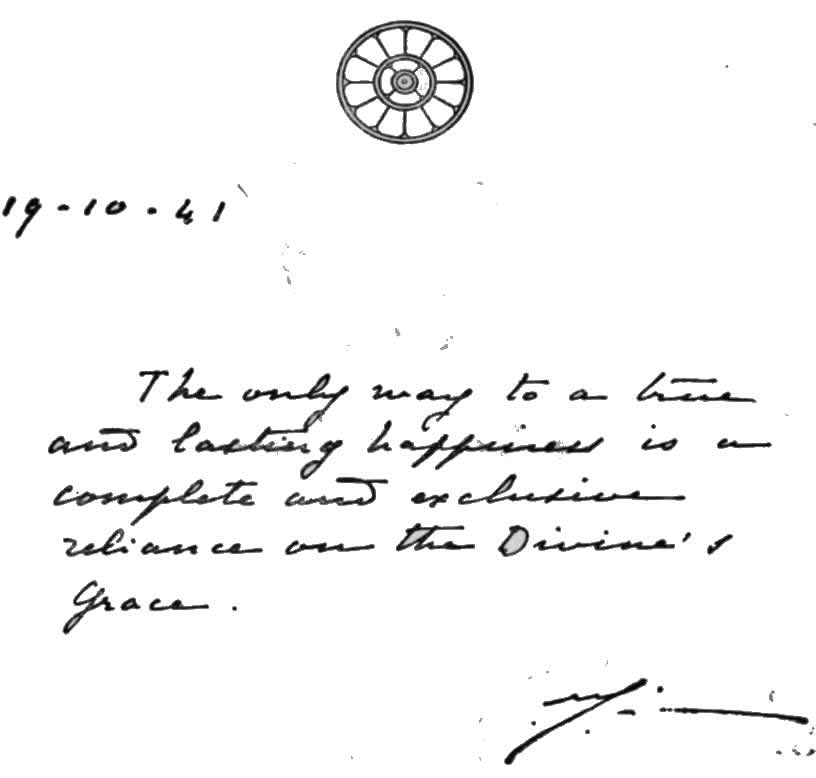 19-10-41
The only way to a true
and lasting happiness is a
complete and exclusive
reliance on the Divine's
Grace.